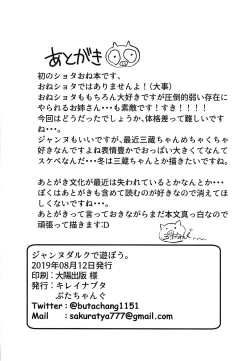 あとがき
初のショタおね本です、
おねショタではありませんよ!(大事)
おねショタももちろん大好きですが圧倒的弱い存在に
やられるお姉さん・・・も素敵です!すき!!!!
今回はどうだったでしょうか、体格差って難しいです
ね・・・。
ジャンヌもいいですが、最近三蔵ちゃんめちゃくちゃ
好きなんですよね表情豊かでおっぱい大きくてなんて
スケベなんだ・・・冬は三蔵ちゃんとか描きたいですね。
あとがき文化が最近は失われているとかなんとか・・・
ぼくはあとがきも含めて読むのが好きなので消えてほ
しくないですね・・・。
あとがきって言っておきながらまだ本文真っ白なので
頑張って描きます:D
ジャンヌダルクで遊ぼう。
2019年08月12日発行
印刷:大陽出版 様
発行:キレイナブタ
ぶたちゃんぐ
Twitter : @butachang1151
Mail : sakuratya777@gmail.com